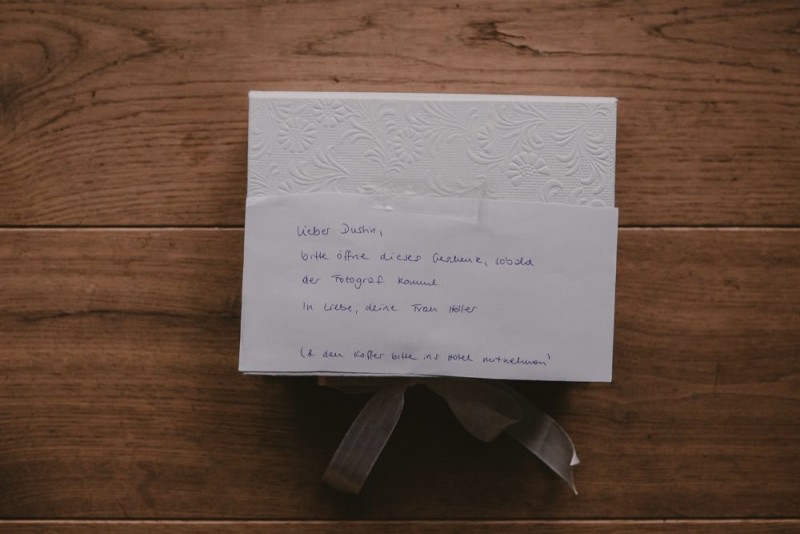 Lieber Dustin,
bitte öffne dieses Geschenk, sobald
der Fotograf kommt
In Liebe, deine Frau Höller
(& den Koffer bitte ins Hotel mitnehmen)